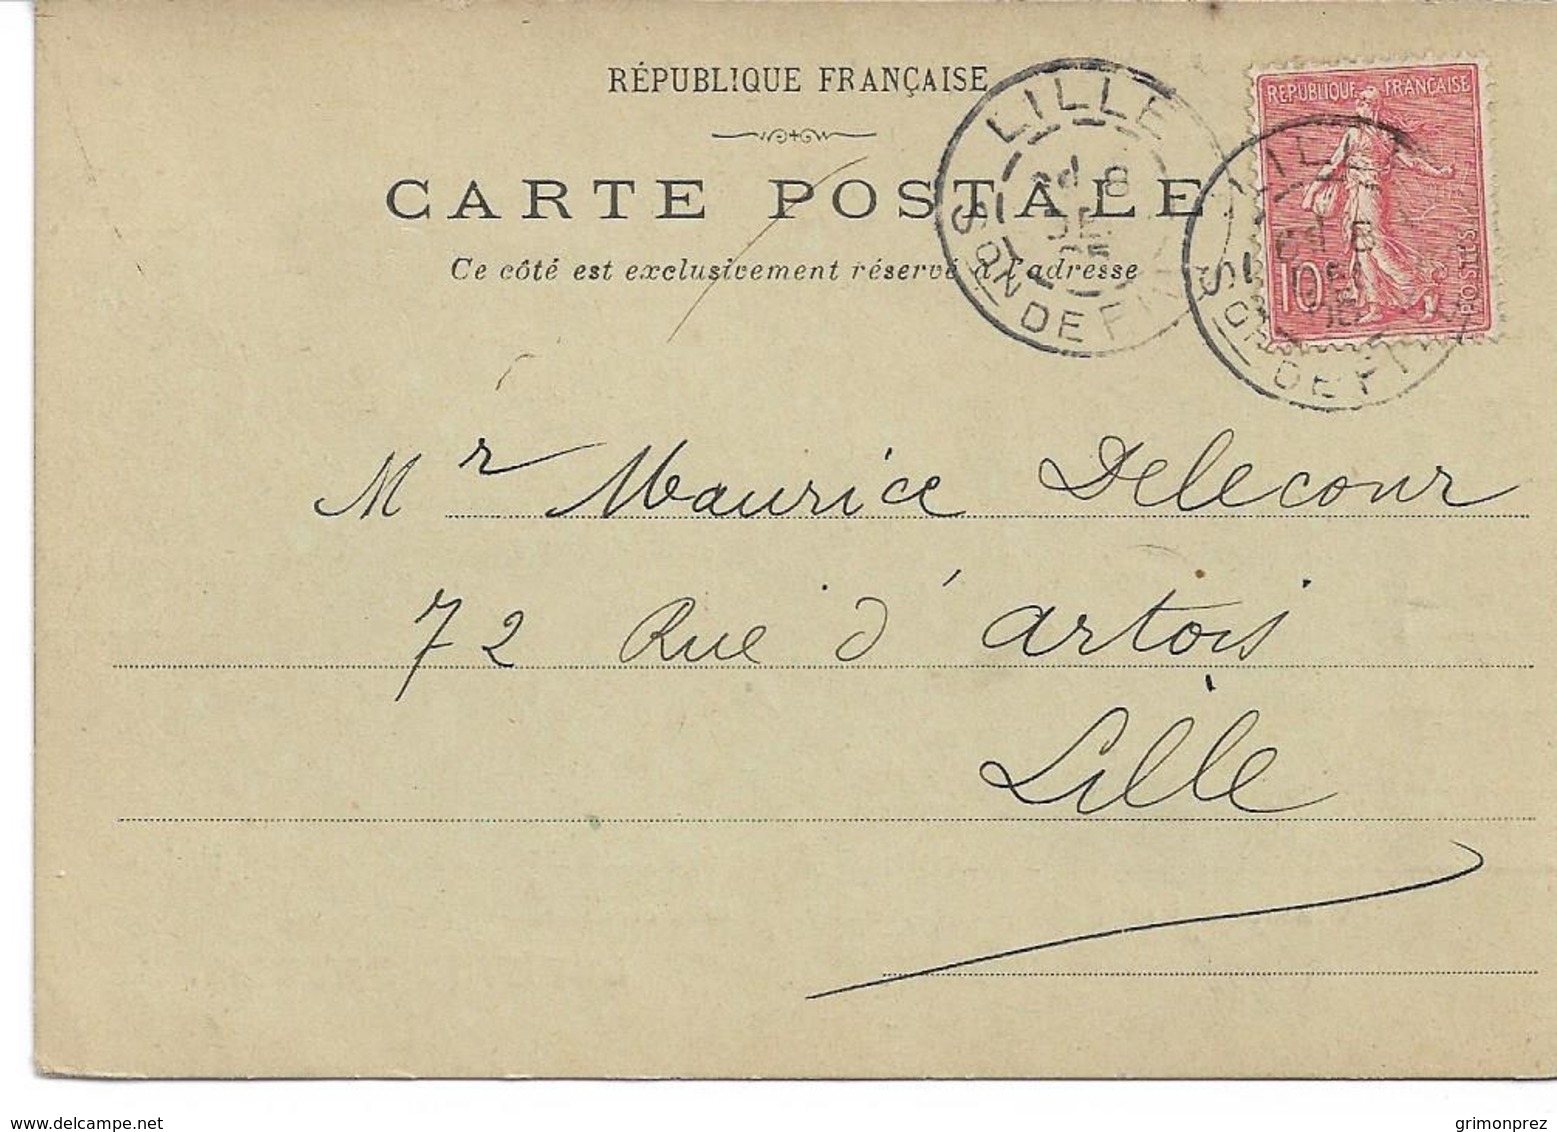 RÉPUBLIQUE FRANÇAISE
CARTE POSTALE
Ce côté est exclusivement réservé à l'adresse
LILLE
8
DE
SON DE FIV
REPUBLIQUE FRANÇAISE
10
POSTES
LILLE
8
DE
Mr Maurice Delecour
72 Rue d'artois
Lille
delcampe.net
grimonprez